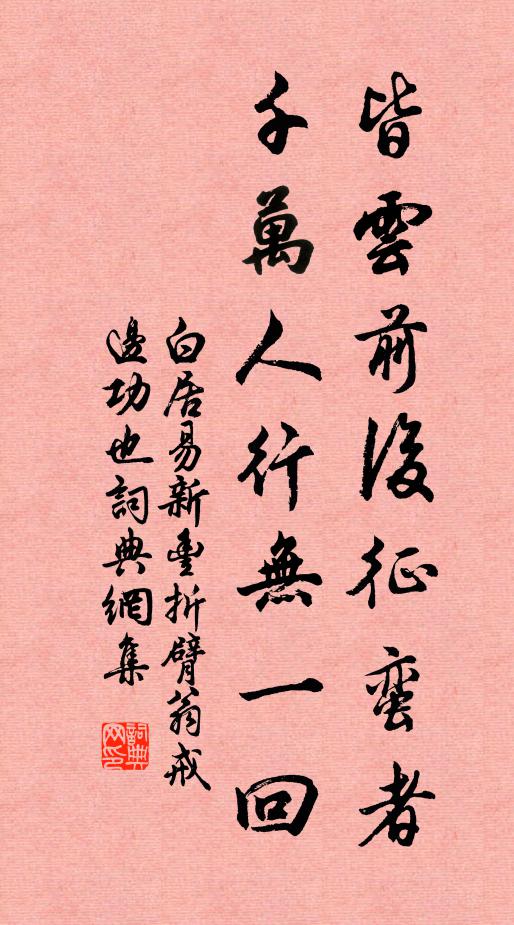 皆雲前後征蛮者
千萬人行無一回
白居易新豐折臂翁戒
邊功也詞典網集
詞典网印